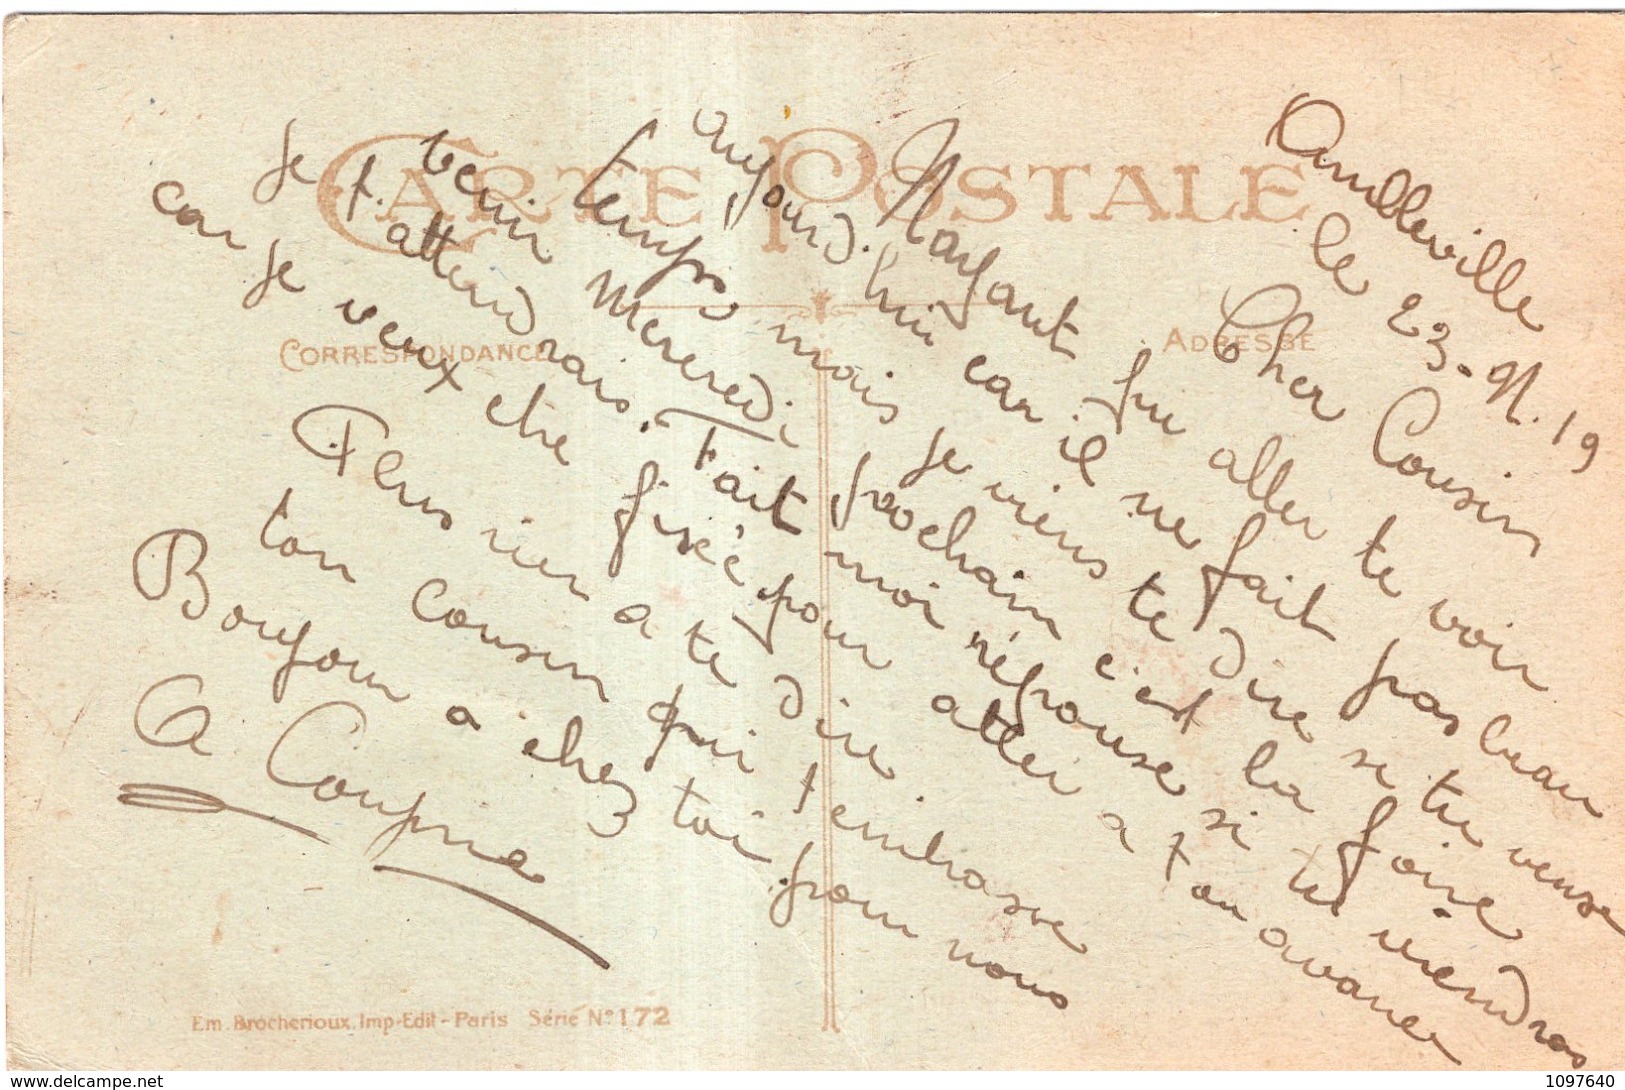 CARTE POSTALE
CORRESPONDANCE
ADRESSE
Ambleville
le 23. N. 19
Cher Cousin
N'ayant pu aller te voir
aujourd'hui car il ne fait pas beau
temps mais je viens te dire si tu veuse
venir Mereredi prochain c'est la foire
je t'attendrais. Fait moi réponse si tu viendras
car je veux etre fixée pour aller a t'on avance
Plus rien a te dire
ton cousin qui t'embrasse
Bonjour a chez toi pour nous
A Coupne
Em. Brocherioux. Imp-Edit - Paris Série N° 172
www.delcampe.net
1097640